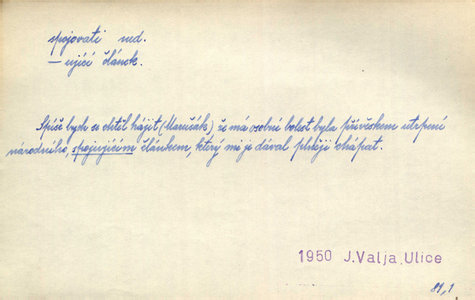 spojovati ned.
— ující článek.
Spíše bych se chtěl hájit (Maručák) že má osobní bolest byla přívěskem utrpení
národního, spojujícím článkem, který mi je dával plněji chápat.
1950 J.Valja,Ulice
81,1